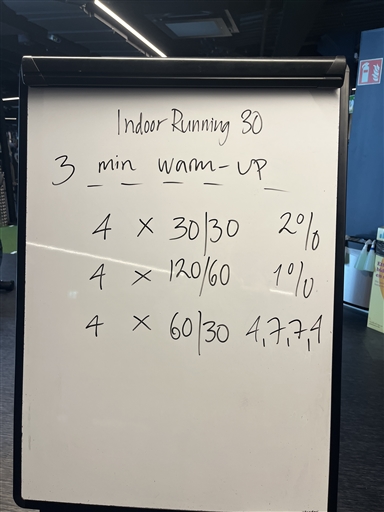 Indoor Running 30
3 min warm-up
4 × 30/30 2%
4 × 120/60 1%
4 × 60/30 4,7,7,4